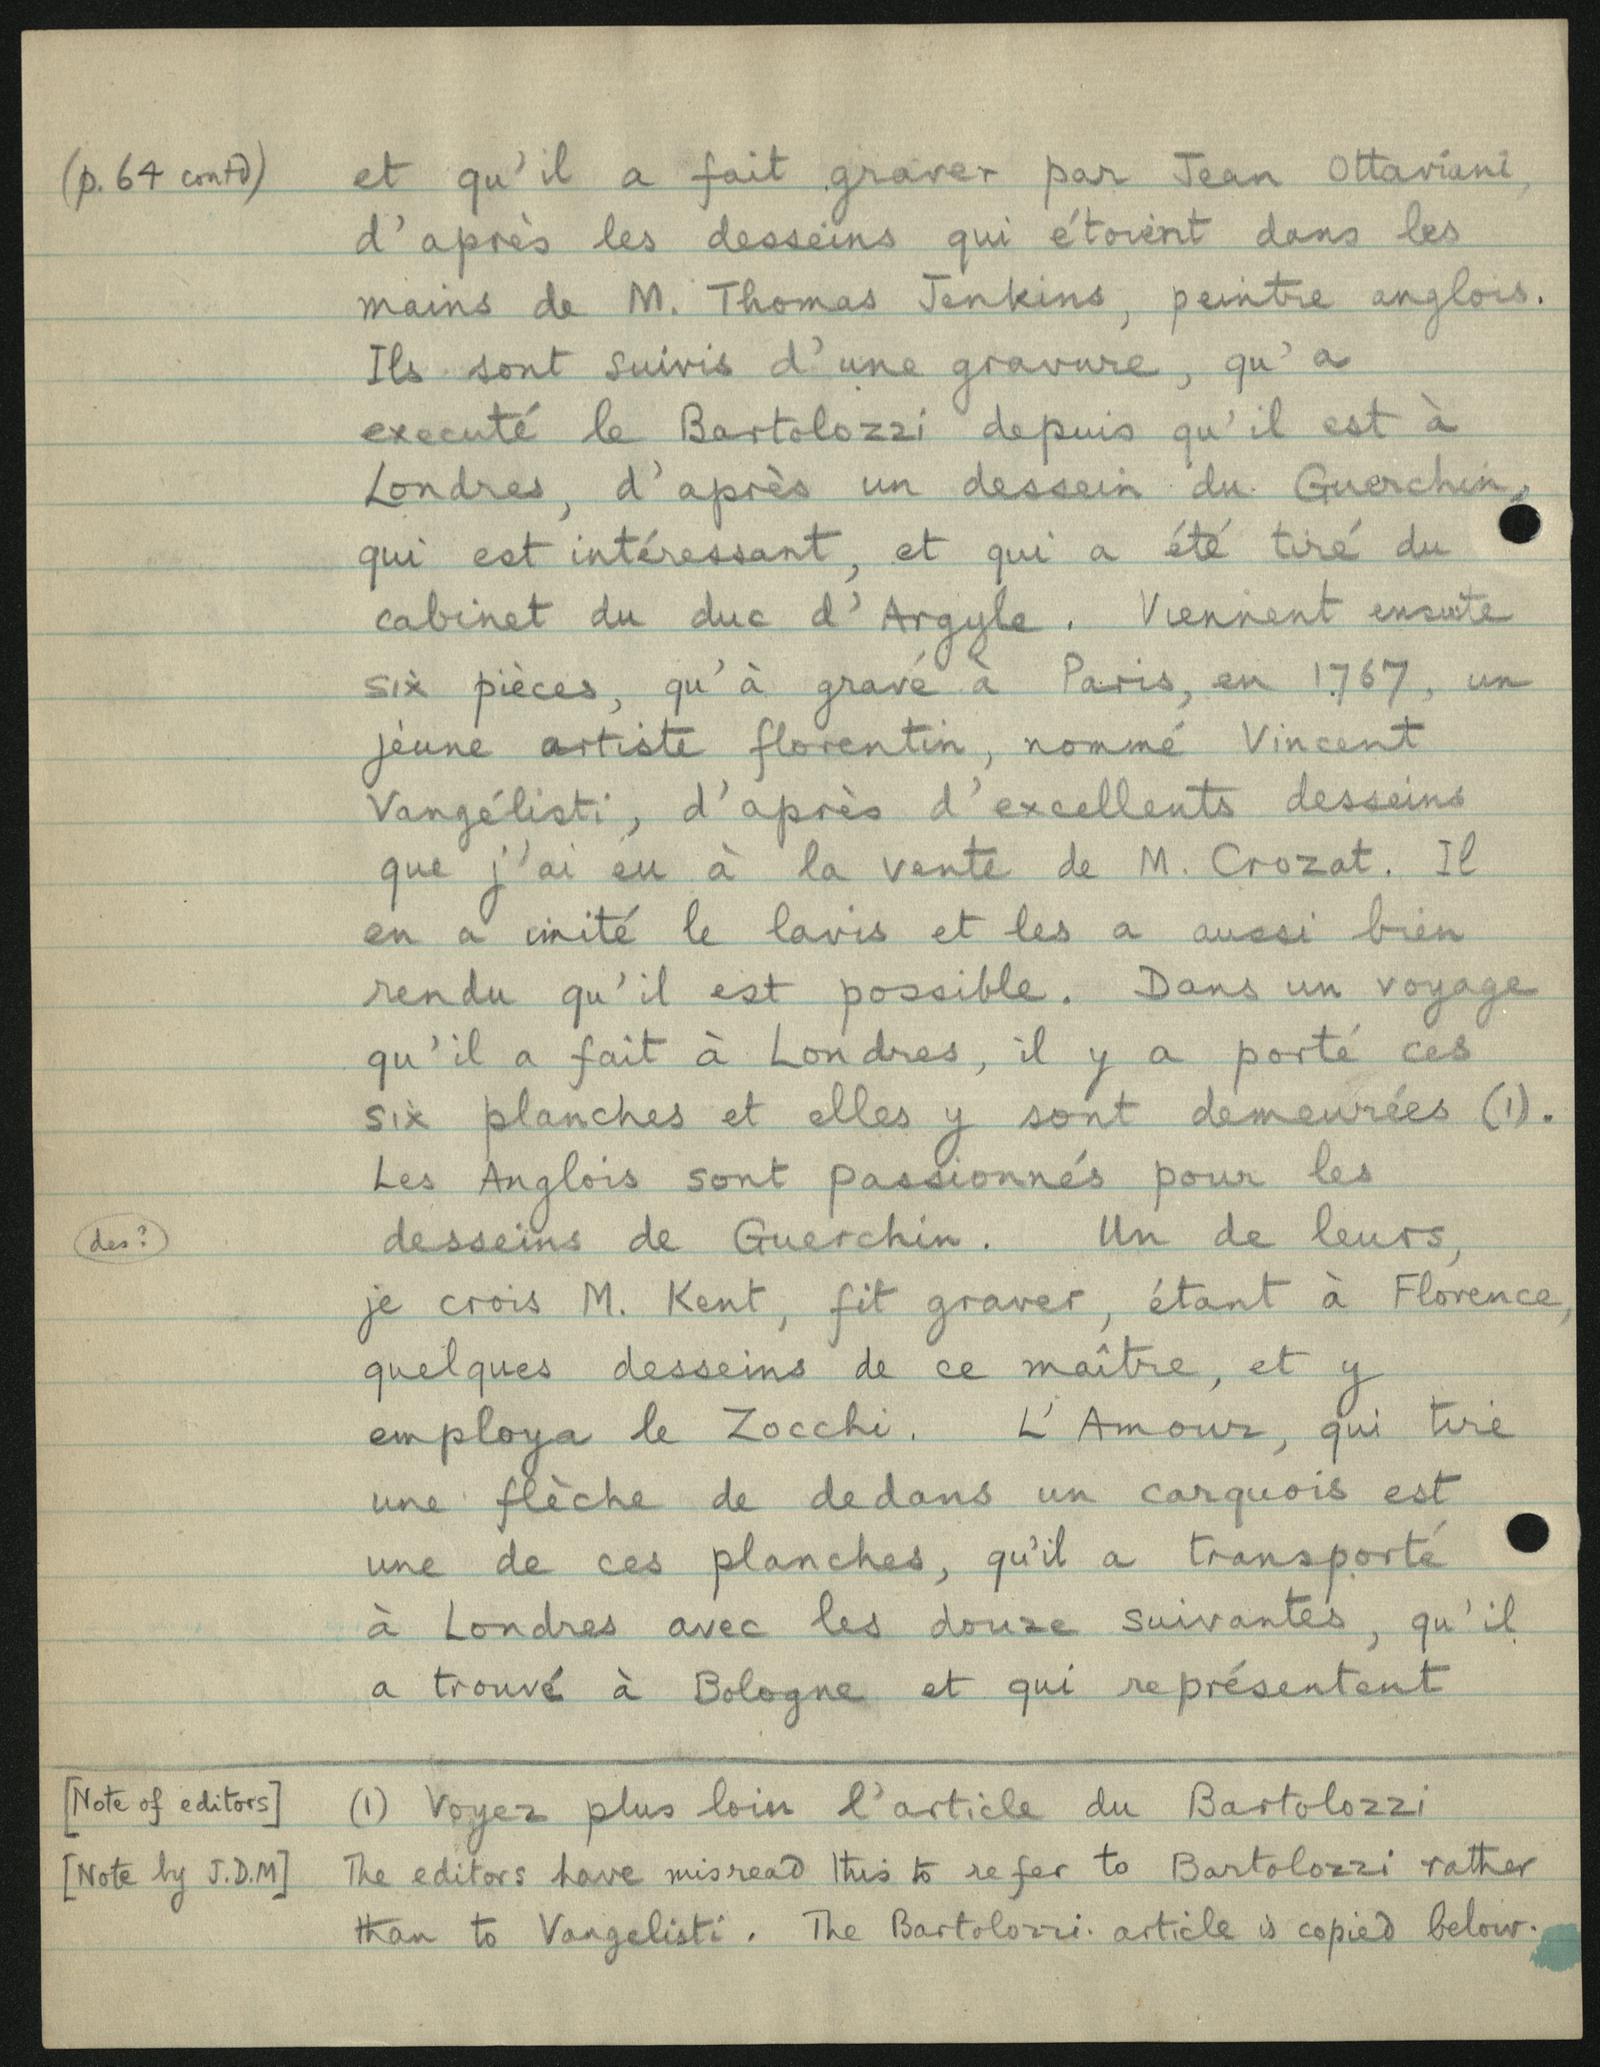 (p. 64 contd) et qu'il a fait graver par Jean Ottaviani,
d'après les desseins qui étoient dans les
mains de M. Thomas Jenkins, peintre anglois.
Ils sont suivis d'une gravure, qu'a
executé le Bartolozzi depuis qu'il est à
Londres, d'après un dessein du Guerchin,
qui est intéressant, et qui a été tiré du
cabinet du duc d'Argyle. Viennent ensuite
six pièces, qu'à gravé à Paris, en 1767, un
jeune artiste florentin, nommé Vincent
Vangélisti, d'après d'excellents desseins
que j'ai eu à la vente de M. Crozat. Il
en a imité le lavis et les a aussi bien
rendu qu'il est possible. Dans un voyage
qu'il a fait à Londres, il y a porté ces
six planches et elles y sont demeurées (1).
Les Anglois sont passionnés pour les
(des?) desseins de Guerchin. Un de leurs,
je crois M. Kent, fit graver, étant à Florence,
quelques desseins de ce maître, et y
employa le Zocchi. L'Amour, qui tire
une flèche de dedans un carquois est
une de ces planches, qu'il a transporté
à Londres avec les douze suivantes, qu'il
a trouvé à Bologne et qui représentent
[Note of editors] (1) Voyez plus loin l'article du Bartolozzi
[Note by J.D.M] The editors have misread this to refer to Bartolozzi rather
than to Vangelisti. The Bartolozzi article is copied below.